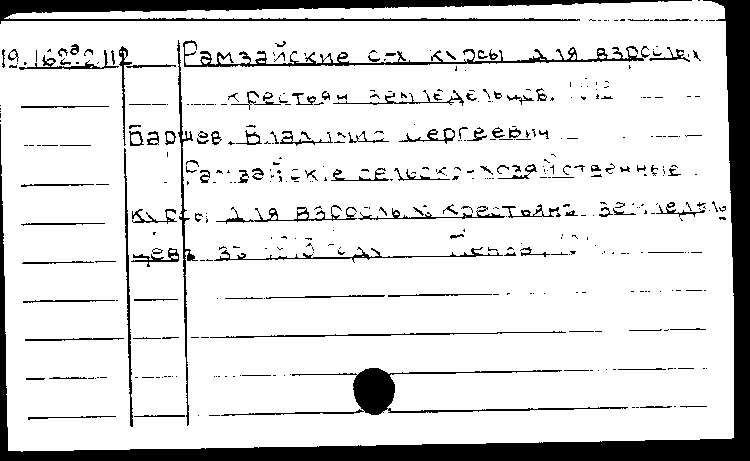 19.162ª.2.112 Рамзайские с-х курсы для взрослых
крестьян земледельцев.
Баршев, Владимир Сергеевич
Рамзайские сельско-хозяйственные
курсы для взрослыхъ крестьянъ земледель-
цевъ въ 1913 году. Пенза,